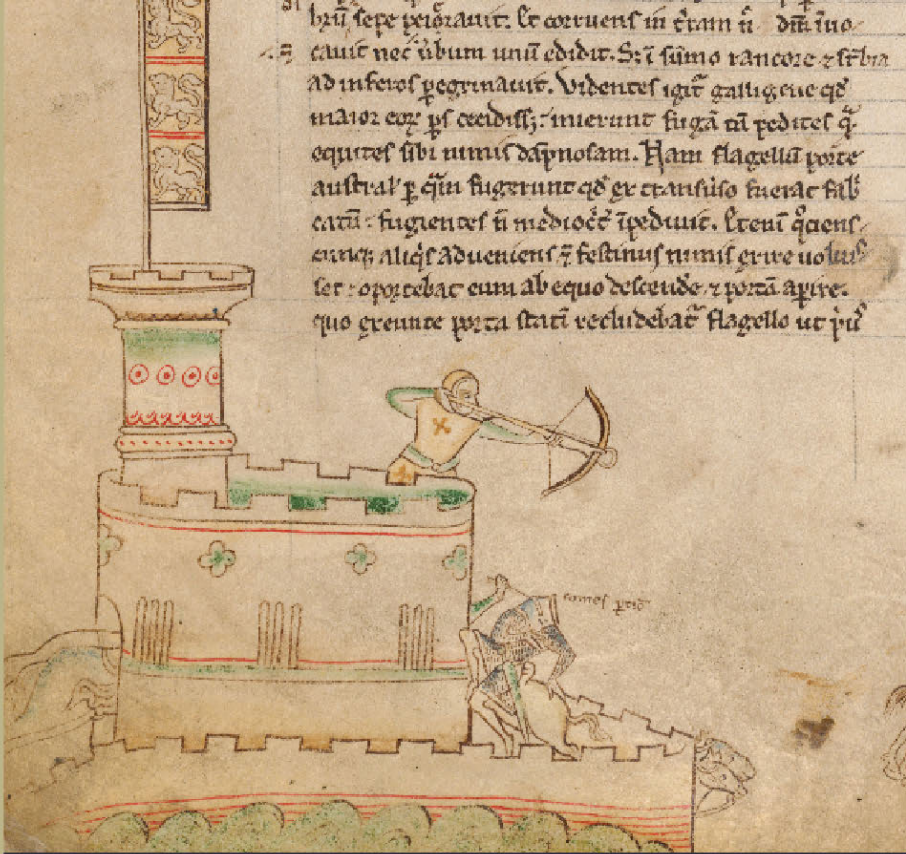 brū sepe peiorauit. Et corruens in t̄ram n̄ dn̄m īuo
cauit nec ūbum unū edidit. S; ī sūmo rancore ⁊ suꝑbia
ad inferos ꝑegrinauit. Videntes igit᷑ galligene qd̄
maior eoꝝ ꝑs cecidiss;: inierunt fugā tā pedites q̄
equites sibi nimis dāpnosam. Nam flagellū porte
austral' ꝑ quā fugerunt qd̄ ex transuerso fuerat fab
catū: fugientes n̄ mediocrit̄ īpediuit. Etenī q̄ciens
cunq; aliq̄s adueniens ⁊ festinus nimis exire uoluis
set: oportebat eum ab equo descendē ⁊ portā aperire.
quo exeunte porta statī recludebat᷑ flagello ut p̄us
comes ꝑtic̄